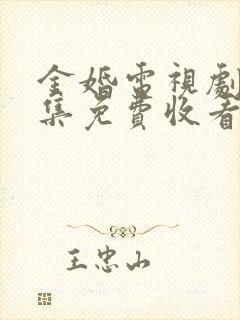 金婚雷視劇
集免費收看
王忠山